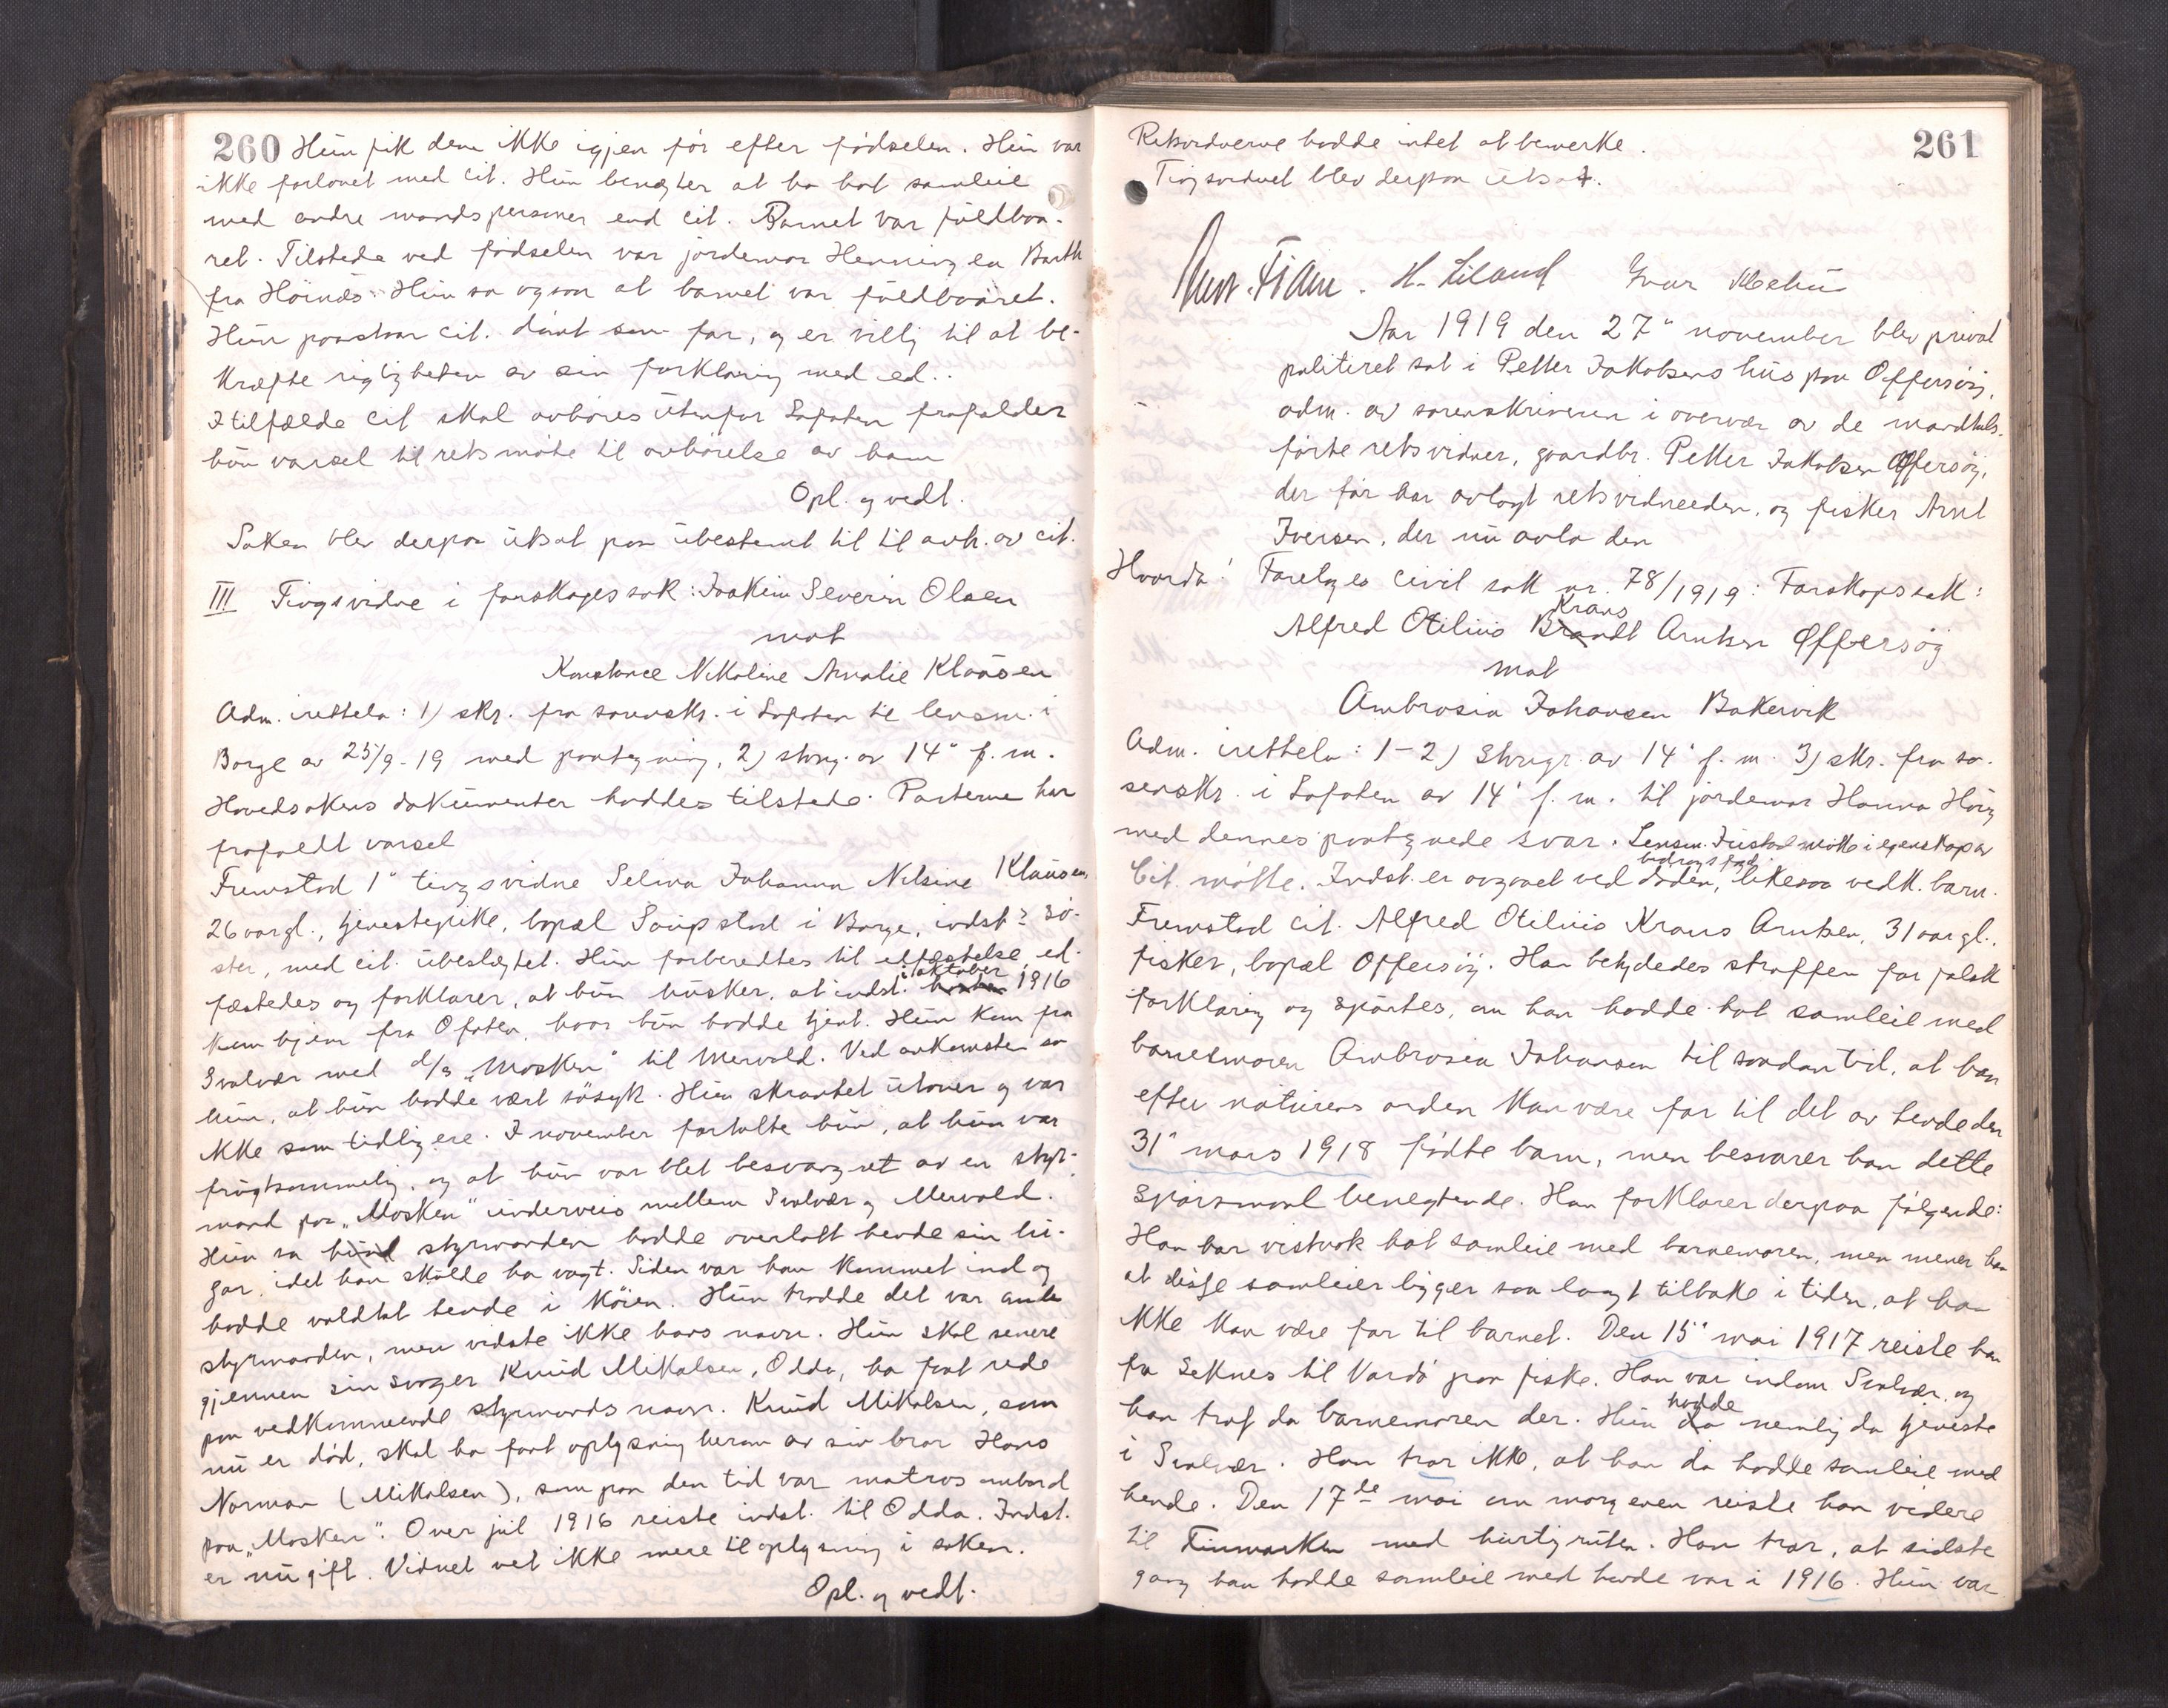 260 Hun fik dem ikke igjen før efter fødselen. Hun var
ikke forlovet med cit. Hun benegter at ha hat samleie
med andre mandspersoner end cit. Barnet var fuldbaa-
ret. Tilstede ved fødselen var jordemor Henningea Barth
fra Høinæs. Hun sa ogsaa at barnet var fuldbaaret.
Hun paastaar cit. dømt som far, og er villig til at be-
kræfte rigtigheten av sin forklaring med ed.
I tilfælde cit skal avhøres utenfor Lofoten frafalder
hun varsel til retsmøte til avhørelse av ham
Opl. og vedt.
Saken blev derpaa utsat paa ubestemt tid til avh. av cit.
III Tingsvidne i farskapssak: Joakim Severin Olsen
mot
Konstance Nikoline Amalie Klausen
Adm. irettela: 1) skr. fra sorenskr. i Lofoten til lensm. i
Borge av 25/9-19 med paategning, 2) stevng. av 14" f. m.
Hovedsakens dokumenter haddes tilstede. Parterne har
frafaldt varsel
Fremstod 1" tingsvidne Selma Johanna Nilsine Klausen,
26 aar gl., tjenestepike, bopæl Saupstad i Borge, indst.s sø-
ster, med cit. ubeslegtet. Hun forberedtes til edfæstelse, ed-
fæstedes og forklarer, at hun husker, at indst. i oktober 1916
kom hjem fra Ofoten, hvor hun hadde tjent. Hun kom fra
Svolvær med d/s "Mosken" til Mervold. Ved ankomsten sa
hun, at hun hadde vært sjøsyk. Hun skrantet utover og var
ikke som tidligere. I november fortalte hun, at hun var
frugtsommelig, og at hun var blet besvangret av en styr-
mand paa "Mosken" underveis mellem Svolvær og Mervold.
Hun sa styrmanden hadde overlatt hende sin lu-
gar, idet han skulde ha vagt. Siden var han kommet ind og
hadde voldtat hende i køien. Hun trodde det var
styrmanden, men vidste ikke hans navn. Hun skal senere
gjennem sin svoger Knud Mikalsen, Odda, ha faat rede
paa vedkommende styrmands navn. Knud Mikalsen, som
nu er død, skal ha faat oplysning herom av sin bror Hans
Norman (Mikalsen), som paa den tid var matros ombord
paa "Mosken". Over jul 1916 reiste indst. til Odda. Indst.
er nu gift. Vidnet vet ikke mere til oplysning i saken.
Opl. og vedt.
261
Retsvidnerne hadde intet at bemerke.
Tingsvidnet blev derpaa utsat.
H. Liland Ivar
Aar 1919 den 27" november blev privat
politiret sat i Petter Jakobsens hus paa Offersøy,
adm. av sorenskriveren i overvær av de mandtals-
førte retsvidner, gaardbr. Petter Jakobsen Offersøy,
der før har avlagt retsvidneeden, og fisker Arnt
Iversen, der nu avla den
Hvorda: Foretoges civil sak nr. 78/1919: Farskapssak:
Krans
Alfred Otilius Brandt Arntsen Offersøy
mot
Ambrosia Johansen Bakervik
Adm. irettela: 1-2) Stevngr. av 14" f. m. 3) skr. fra so-
renskr. i Lofoten av 14" f. m. til jordemor Hanna Høeg
med dennes paategnede svar. Lensm. Fristad møtte i egenskap av
bidragsfogd.
Cit. møtte. Indst. er avgaaet ved døden, likesaa vedk. barn.
Fremstod cit. Alfred Otilius Krans Arntsen, 31 aar gl.,
fisker, bopæl Offersøy. Han betydedes straffen for falsk
forklaring og spørtes, om han hadde hat samleie med
barnemoren Ambrosia Johansen til saadan tid, at han
efter naturens orden kan være far til det av hende den
31" mars 1918 fødte barn, men besvarer han dette
spørsmaal benegtende. Han forklarer derpaa følgende:
Han har vistnok hat samleie med barnemoren, men mener han
at disse samleier ligger saa langt tilbake i tiden, at han
ikke kan være far til barnet. Den 15" mai 1917 reiste han
fra Leknes til Vardø paa fiske. Han var indom Svolvær, og
hadde
han traf da barnemoren der. Hun da nemlig da tjeneste
i Svolvær. Han tror ikke, at han da hadde samleie med
hende. Den 17de mai om morgenen reiste han videre
til Finmarken med hurtigruten. Han tror, at sidste
gang han hadde samleie med hende var i 1916. Hun var